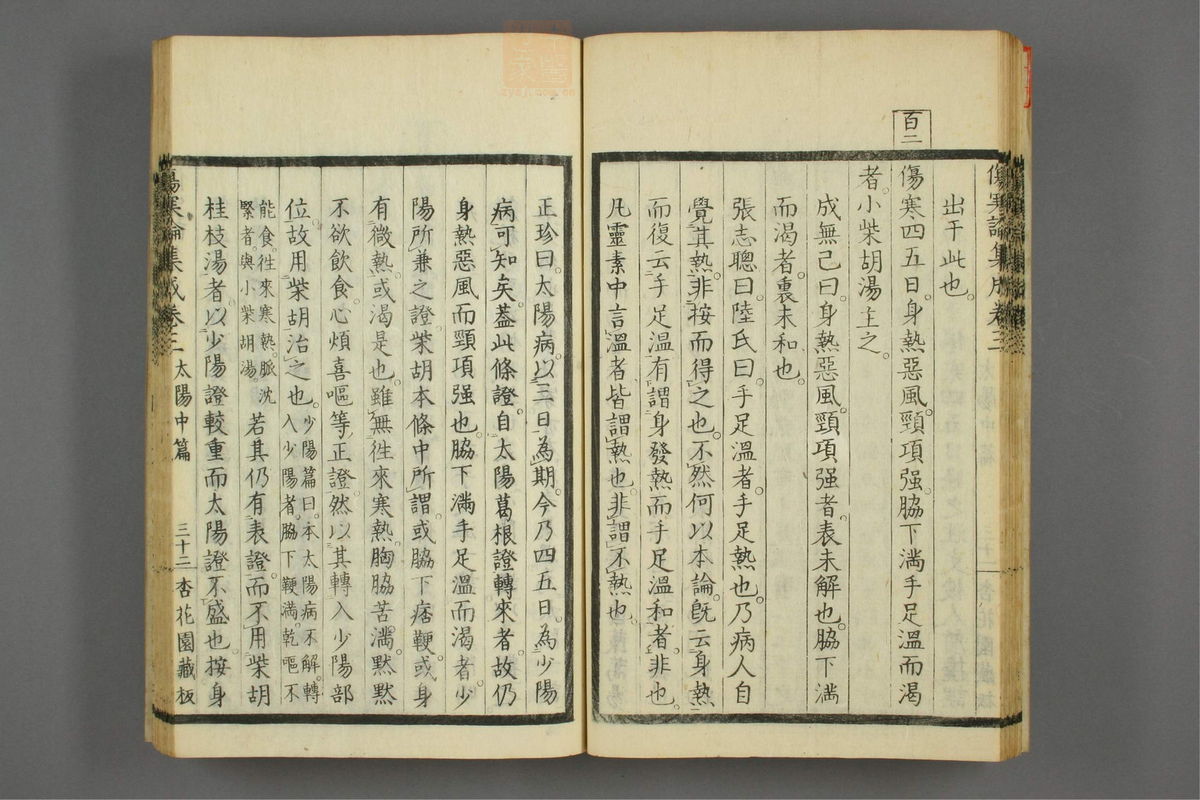 百二
傷寒論集成卷三
出于此也。
傷寒四五日。身熱惡風。頸項强。脇下滿。手足溫而渴
者。小柴胡湯主之。
成無己曰。身熱惡風。頸項强者。表未解也。脇下滿
而渴者。裏未和也。
張志聰曰。陸氏曰。手足溫者。手足熱也。乃病人自
覺其熱。非按而得之也。不然。何以本論既云身熱。
而復云手足溫。有謂身發熱而手足溫和者。非也。
凡靈素中言溫者。皆謂熱也。非謂不熱也。
正珍曰。太陽病。以三日為期。今乃四五日。為少陽
病可知矣。蓋此條證。自太陽葛根證轉來者。故仍
身熱惡風而頸項强也。脇下滿手足溫而渴者。少
陽所兼之證。柴胡本條中。所謂或脇下痞鞕。或身
有微熱。或渴是也。雖無往來寒熱。胸脇苦滿。默默
不欲飲食。心煩喜嘔等正證。然以其轉入少陽部
位。故用柴胡治之也。少陽篇曰。本太陽病不解。轉入少陽者。脇下鞕滿。乾嘔不
能食。往來寒熱。脈沈緊者。與小柴胡湯。若其仍有表證。而不用柴胡
桂枝湯者。以少陽證較重而太陽證不盛也。按身
傷寒論集成卷三 太陽中篇 三十二 杏花園藏板